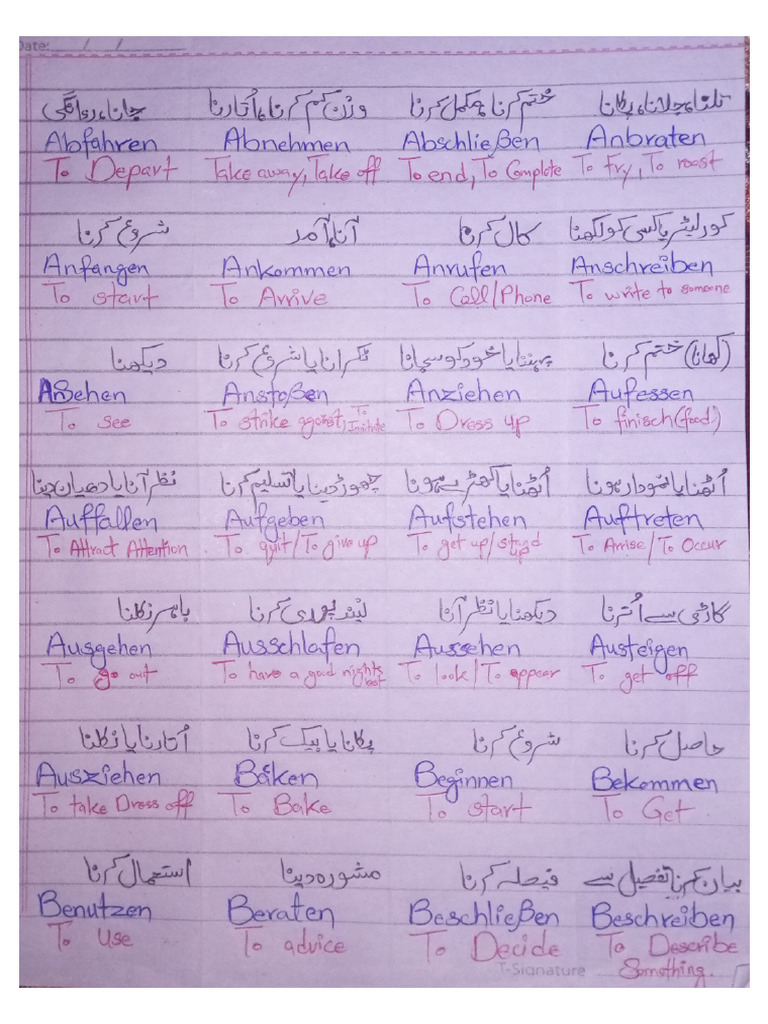 Date: / /
جانا، روانگی وزن کم کرنا، اُتارنا ختم کرنا، مکمل کرنا تلنا، جلانا، پکانا
Abfahren Abnehmen Abschließen Anbraten
To Depart Take away, Take off To end, To Complete To Fry, To roast
شروع کرنا آنا، آمد کال کرنا کور لیٹر یا کسی کو لکھنا
Anfangen Ankommen Anrufen Anschreiben
To start To Arrive To Call/Phone To write to someone
دیکھنا ٹکرانا یا شروع کرنا پہننا یا خود کو سجانا (کھانا) ختم کرنا
Ansehen Anstoßen Anziehen Aufessen
To see To strike against, To Initiate To Dress up To finisch (food)
نظر آنا یا دھیان دینا چھوڑ دینا یا تسلیم کرنا اُٹھنا یا کھڑے ہونا اُٹھنا یا نمودار ہونا
Auffallen Aufgeben Aufstehen Auftreten
To Attract Attention To quit/To give up To get up/stand up To Arrise/To Occur
باہر نکلنا نیند پوری کرنا دیکھنا یا نظر آنا گاڑی سے اُترنا
Ausgehen Ausschlafen Aussehen Austeigen
To go out To have a good nights rest To look/To appear To get off
اُتارنا یا نکلنا پکانا یا بیک کرنا شروع کرنا حاصل کرنا
Ausziehen Baken Beginnen Bekommen
To take Dress off To Bake To start To Get
استعمال کرنا مشورہ دینا فیصلہ کرنا بیان کرنا تفصیل سے
Benutzen Beraten Beschließen Beschreiben
To Use To advice To Decide To Describe Something.
T-Signature